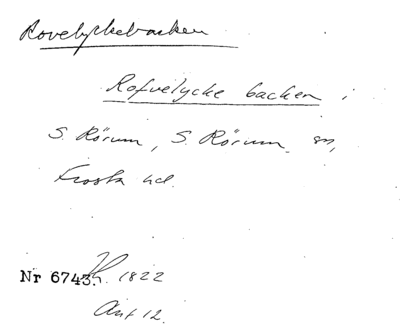 Rovelyckebacken
Rofvelycke backen i
S. Rörum, S. Rörum sn,
Frosta hd.
Nr 6743. 1822
Akt 12.